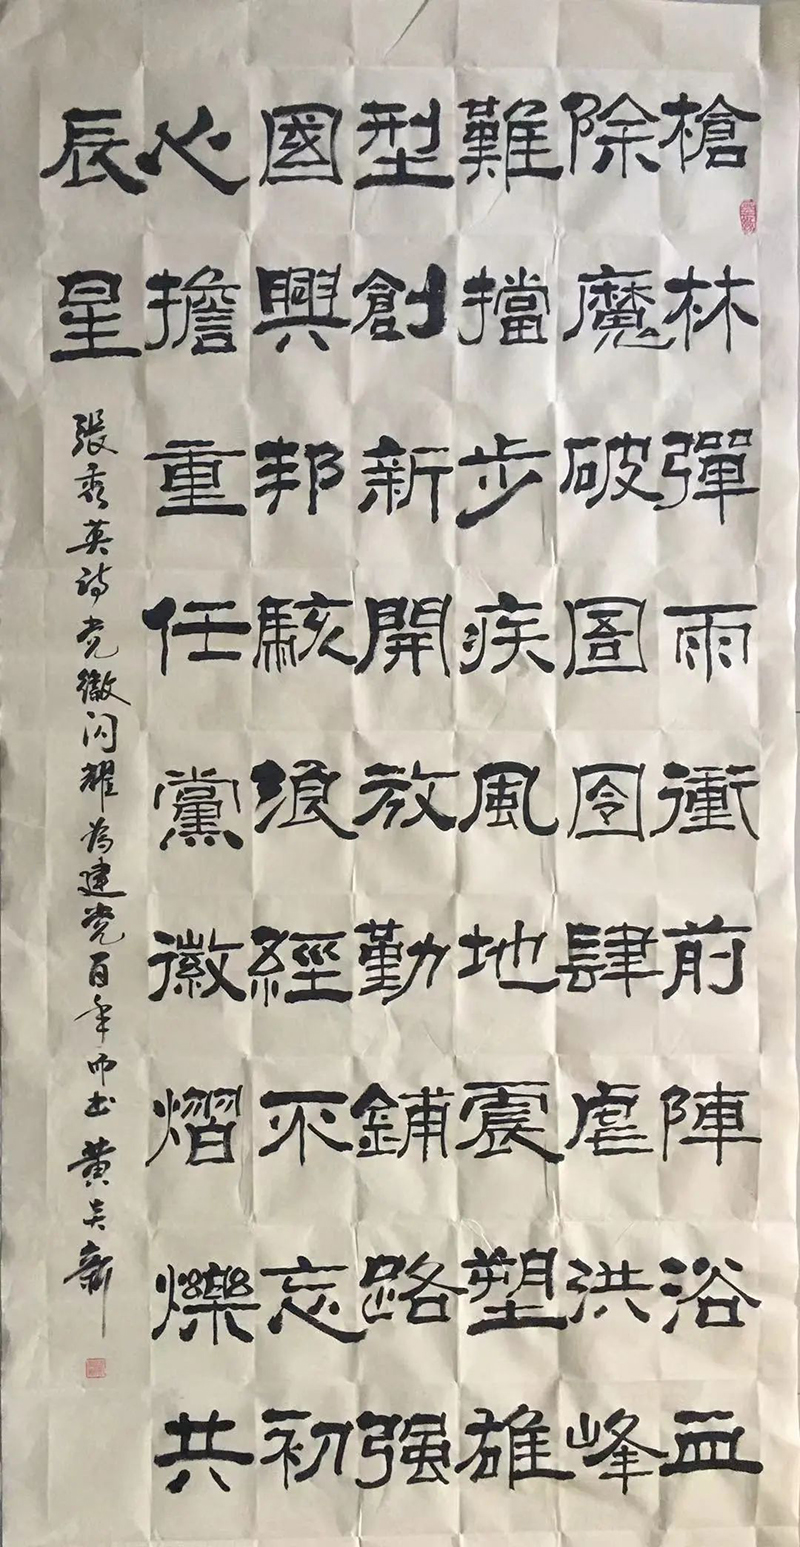 槍林彈雨衝前陣浴血
除魔破圄囹肆虐洪峰
難擋步疾風地震塑雄
型創新開放勤鋪路强
國興邦駭浪經不忘初
心擔重任黨徽熠爍共
辰星
張秀英诗党徽闪耀为建党百年而书黄新